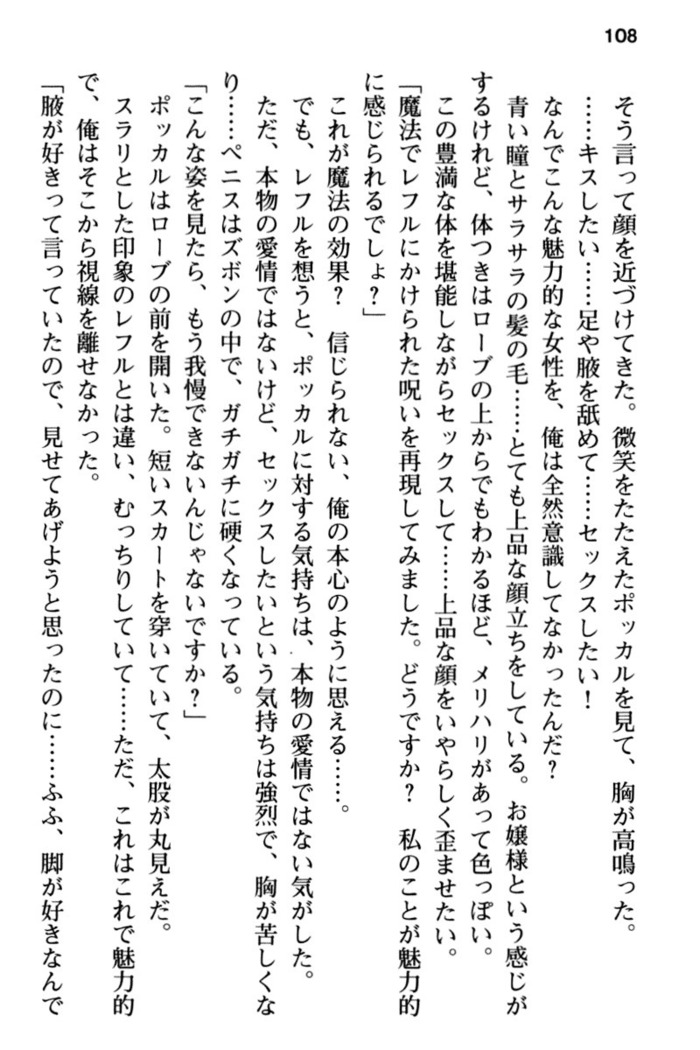 108
そう言って顔を近づけてきた。微笑をたたえたポッカルを見て、胸が高鳴った。
……キスしたい……足や腋を舐めて……セックスしたい！
なんでこんな魅力的な女性を、俺は全然意識してなかったんだ？
青い瞳とサラサラの髪の毛……とても上品な顔立ちをしている。お嬢様という感じが
するけれど、体つきはローブの上からでもわかるほど、メリハリがあって色っぽい。
この豊満な体を堪能しながらセックスして……上品な顔をいやらしく歪ませたい。
「魔法でレフルにかけられた呪いを再現してみました。どうですか？　私のことが魅力的
に感じられるでしょ？」
これが魔法の効果？　信じられない、俺の本心のように思える……。
でも、レフルを想うと、ポッカルに対する気持ちは、本物の愛情ではない気がした。
ただ、本物の愛情ではないけど、セックスしたいという気持ちは強烈で、胸が苦しくな
り……ペニスはズボンの中で、ガチガチに硬くなっている。
「こんな姿を見たら、もう我慢できないんじゃないですか？」
ポッカルはローブの前を開いた。短いスカートを穿いていて、太股が丸見えだ。
スラリとした印象のレフルとは違い、むっちりしていて……ただ、これはこれで魅力的
で、俺はそこから視線を離せなかった。
「腋が好きって言っていたので、見せてあげようと思ったのに……ふふ、脚が好きなんで